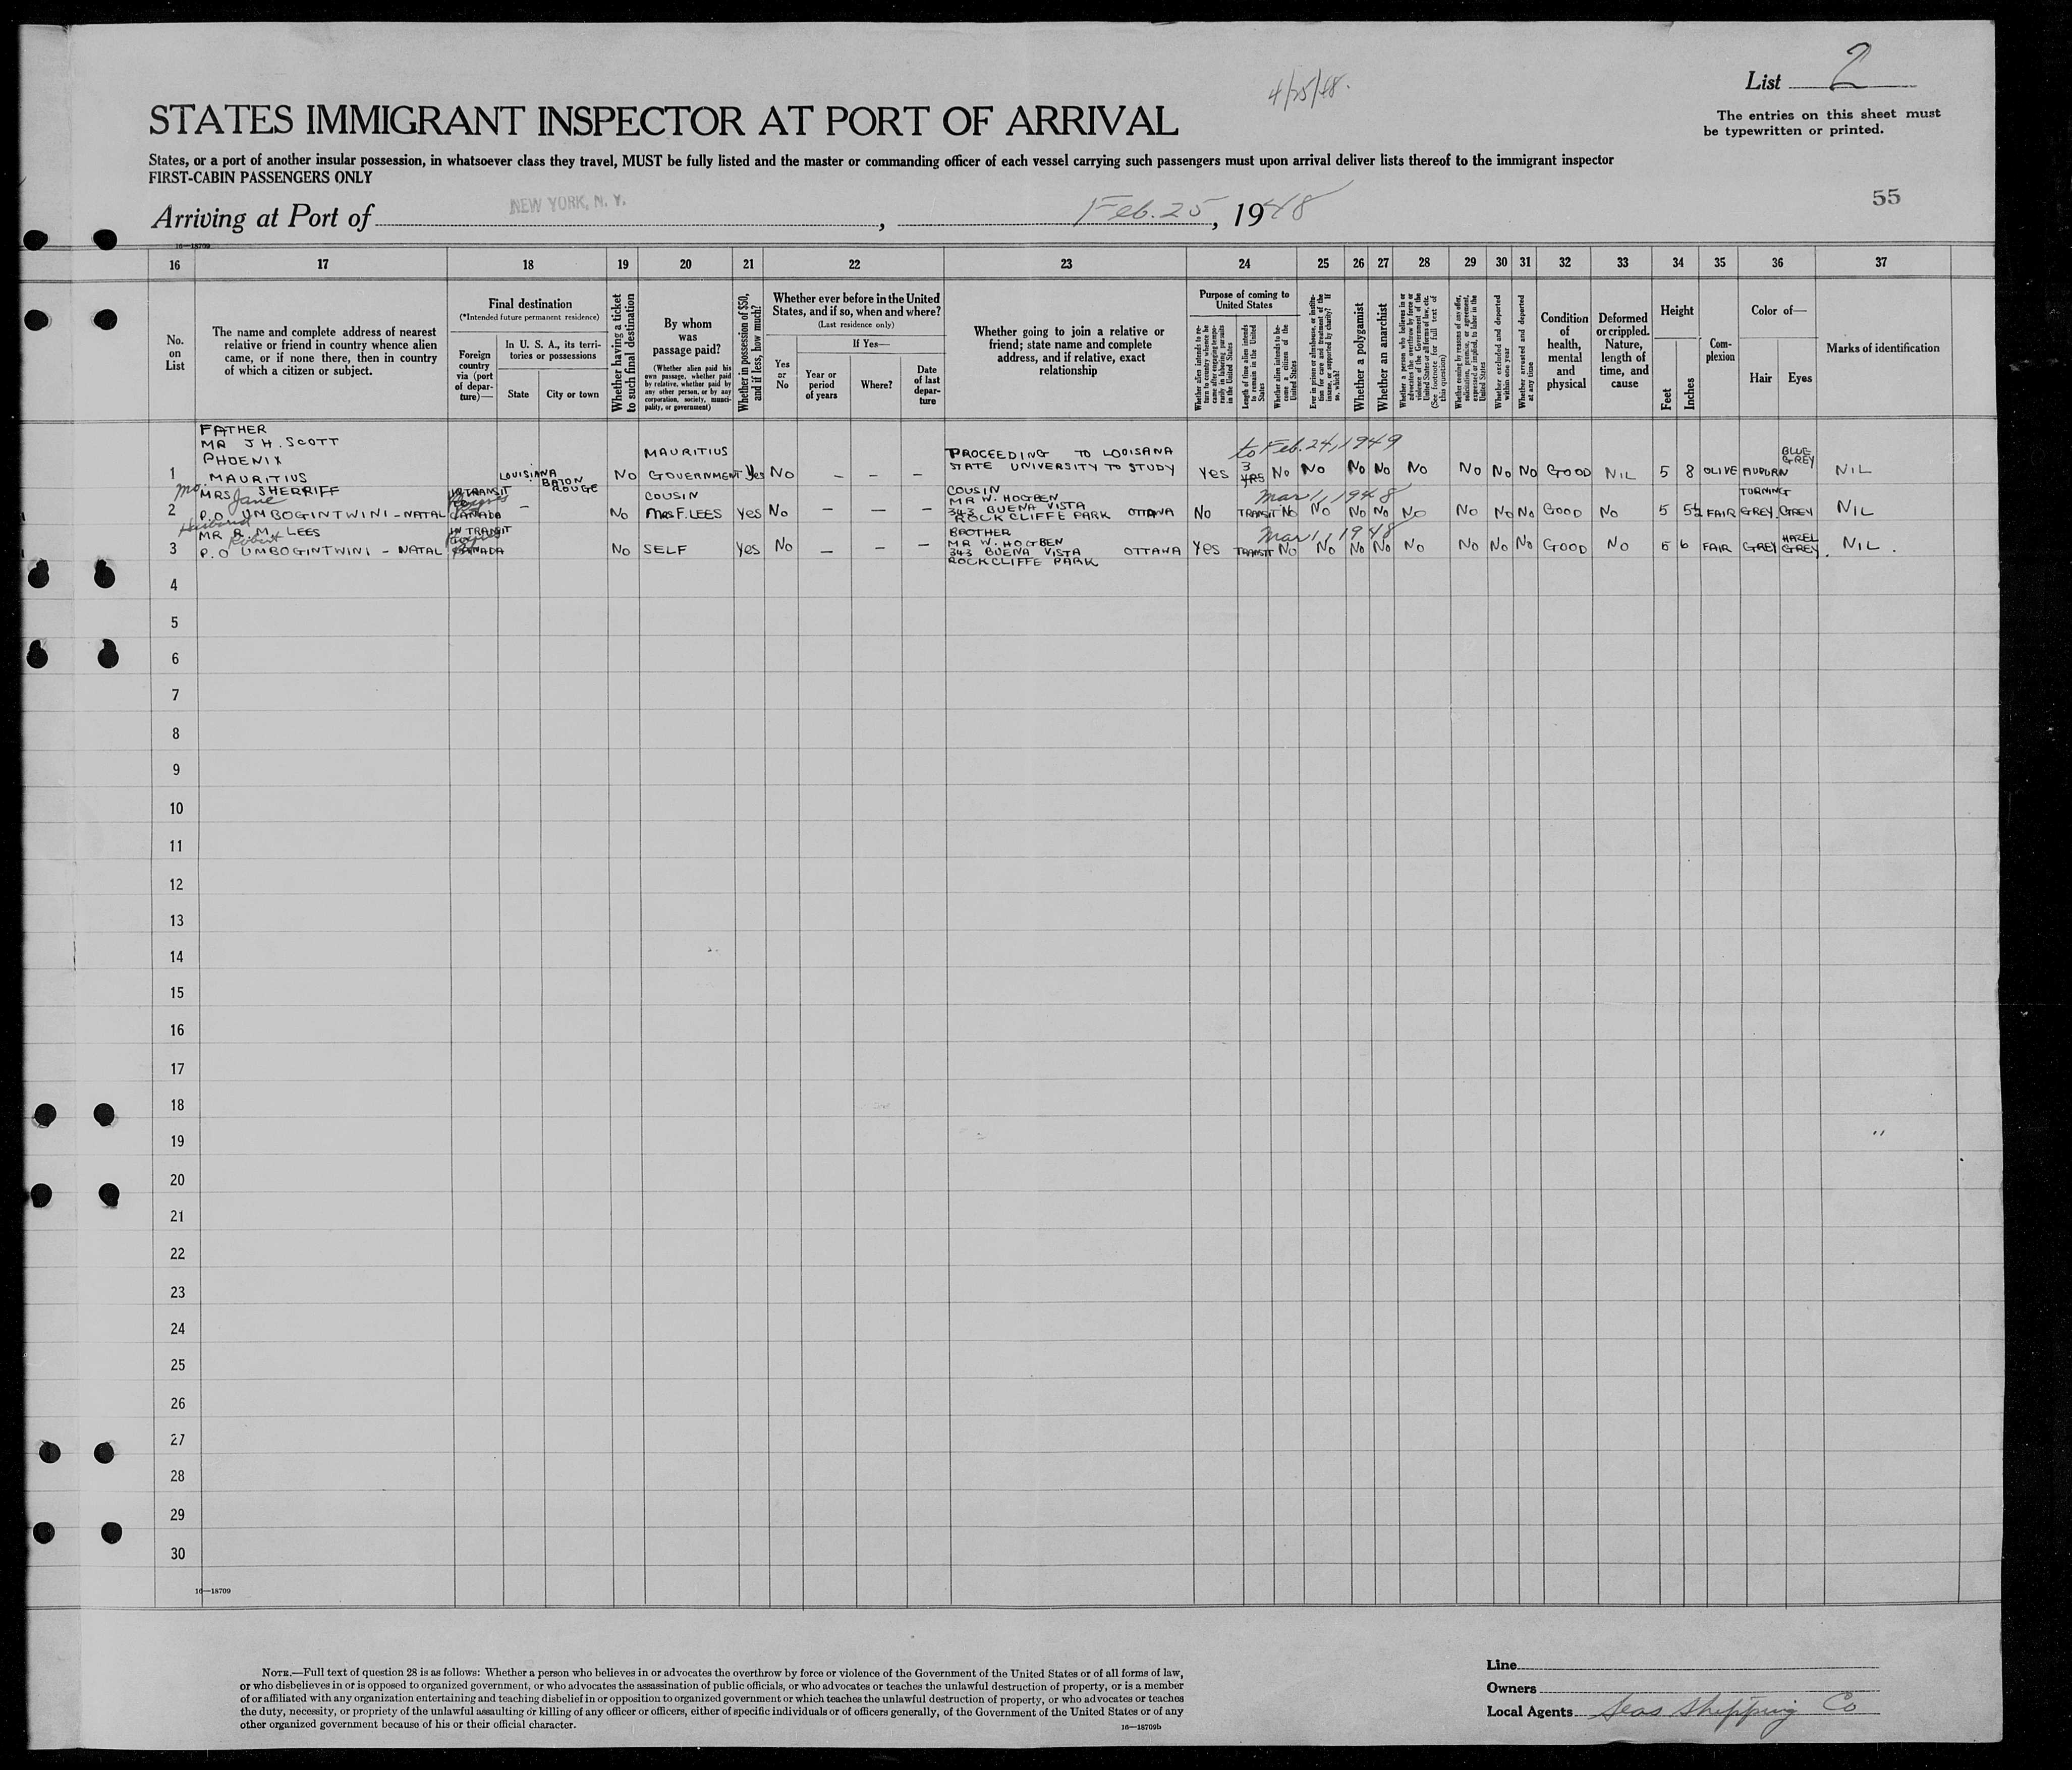 4/25/48.
List 2
STATES IMMIGRANT INSPECTOR AT PORT OF ARRIVAL
The entries on this sheet must
be typewritten or printed.
States, or a port of another insular possession, in whatsoever class they travel, MUST be fully listed and the master or commanding officer of each vessel carrying such passengers must upon arrival deliver lists thereof to the immigrant inspector
FIRST-CABIN PASSENGERS ONLY
55
Arriving at Port of NEW YORK, N. Y., Feb. 25, 1948
16—18709
16 17 18 19 20 21 22 23 24 25 26 27 28 29 30 31 32 33 34 35 36 37
No. on List
The name and complete address of nearest
relative or friend in country whence alien
came, or if none there, then in country
of which a citizen or subject.
Final destination
(*Intended future permanent residence)
Foreign country via (port of departure)—
In U. S. A., its territories or possessions
State
City or town
Whether having a ticket to such final destination
By whom was passage paid?
(Whether alien paid his own passage, whether paid by relative, whether paid by any other person, or by any corporation, society, municipality, or government)
Whether in possession of $50, and if less, how much?
Whether ever before in the United States, and if so, when and where?
(Last residence only)
Yes or No
If Yes—
Year or period of years
Where?
Date of last departure
Whether going to join a relative or
friend; state name and complete
address, and if relative, exact
relationship
Purpose of coming to United States
Whether alien intends to return to country whence he came after engaging temporarily in laboring pursuits in the United States
Length of time alien intends to remain in the United States
Whether alien intends to become a citizen of the United States
Ever in prison or almshouse, or institution for care and treatment of the insane, or supported by charity? If so, which?
Whether a polygamist
Whether an anarchist
Whether a person who believes in or advocates the overthrow by force or violence of the Government of the United States or all forms of law, etc. (See footnote for full text of this question)
Whether coming by reason of any offer, solicitation, promise, or agreement, expressed or implied, to labor in the United States
Whether excluded and deported within one year
Whether arrested and deported at any time
Condition of health, mental and physical
Deformed or crippled. Nature, length of time, and cause
Height
Feet
Inches
Complexion
Color of—
Hair
Eyes
Marks of identification
FATHER
MR J H. SCOTT
PHOENIX
1 MAURITIUS LOUISIANA BATON ROUGE No MAURITIUS GOVERNMENT Yes No — — — PROCEEDING TO LOOISANA STATE UNIVERSITY TO STUDY Yes 3 YRS to Feb. 24, 1949 No No No No No No No No GOOD NIL 5 8 OLIVE AUBURN BLUE GREY NIL
mo. MRS Jane SHERRIFF
2 P.O UMBOGINTWINI - NATAL IN TRANSIT CANADA — No COUSIN MRS F. LEES Yes No — — — COUSIN MR W. HOGBEN 343 BUENA VISTA ROCKCLIFFE PARK OTTAWA No TRANSIT Mar 1, 1948 No No No No No No No No GOOD No 5 5½ FAIR TURNING GREY. GREY NIL
Husband MR R. M. LEES Robert
3 P.O UMBOGINTWINI - NATAL IN TRANSIT CANADA No SELF Yes No — — — BROTHER MR W. HOGBEN 343 BUENA VISTA ROCKCLIFFE PARK OTTAWA Yes TRANSIT Mar 1, 1948 No No No No No No No No GOOD No 5 6 FAIR GREY HAZEL GREY. NIL.
4
5
6
7
8
9
10
11
12
13
14
15
16
17
18
19
20
21
22
23
24
25
26
27
28
29
30
16—18709
NOTE.—Full text of question 28 is as follows: Whether a person who believes in or advocates the overthrow by force or violence of the Government of the United States or of all forms of law,
or who disbelieves in or is opposed to organized government, or who advocates the assassination of public officials, or who advocates or teaches the unlawful destruction of property, or is a member
of or affiliated with any organization entertaining and teaching disbelief in or opposition to organized government or which teaches the unlawful destruction of property, or who advocates or teaches
the duty, necessity, or propriety of the unlawful assaulting or killing of any officer or officers, either of specific individuals or of officers generally, of the Government of the United States or of any
other organized government because of his or their official character.
16—18709b
Line
Owners
Local Agents Seas Shipping Co